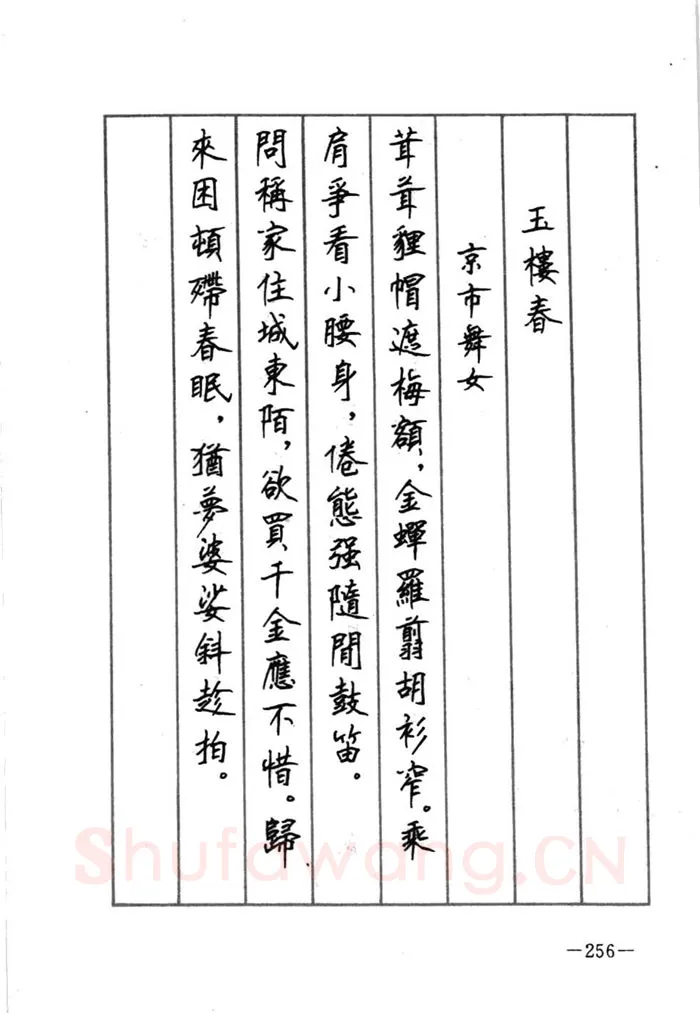 玉樓春
京市舞女
茸茸貍帽遮梅額，金蟬羅翦胡衫窄。乘
肩爭看小腰身，倦態强隨閒鼓笛。
問稱家住城東陌，欲買千金應不惜。歸
來困頓殢春眠，猶夢婆娑斜趁拍。
Shufawang.CN
—256—